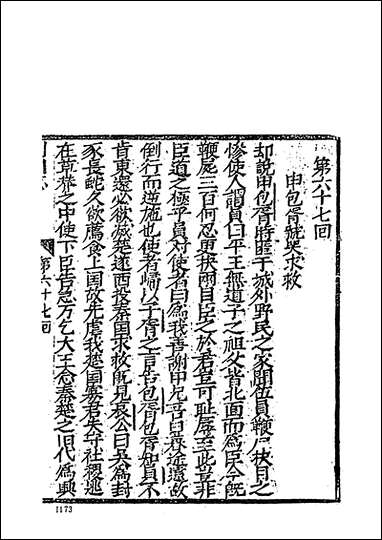 第六十七回
申包胥號哭求救
却說申包胥時匿于城外野民之家聞伍員鞭尸抉目之
慘使人謂員曰平王無道子之祖父皆北面而為臣今旣
鞭屍三百何忍更抉兩目臣之於君豈可耻辱至此豈非
臣道之極乎員對使者曰為我善謝申兄吾曰暮途遠故
倒行而逆施也使者歸以子胥之言告包胥包胥知員不
肯東還必欲滅楚遂西投秦國求救旣見哀公曰吳為封
豕長蛇久欲薦食上国故先虐我楚国寡君失守社稷逃
在草莽之中使下臣告急方乞大王念秦楚之旧代為興
第六十七回
1173